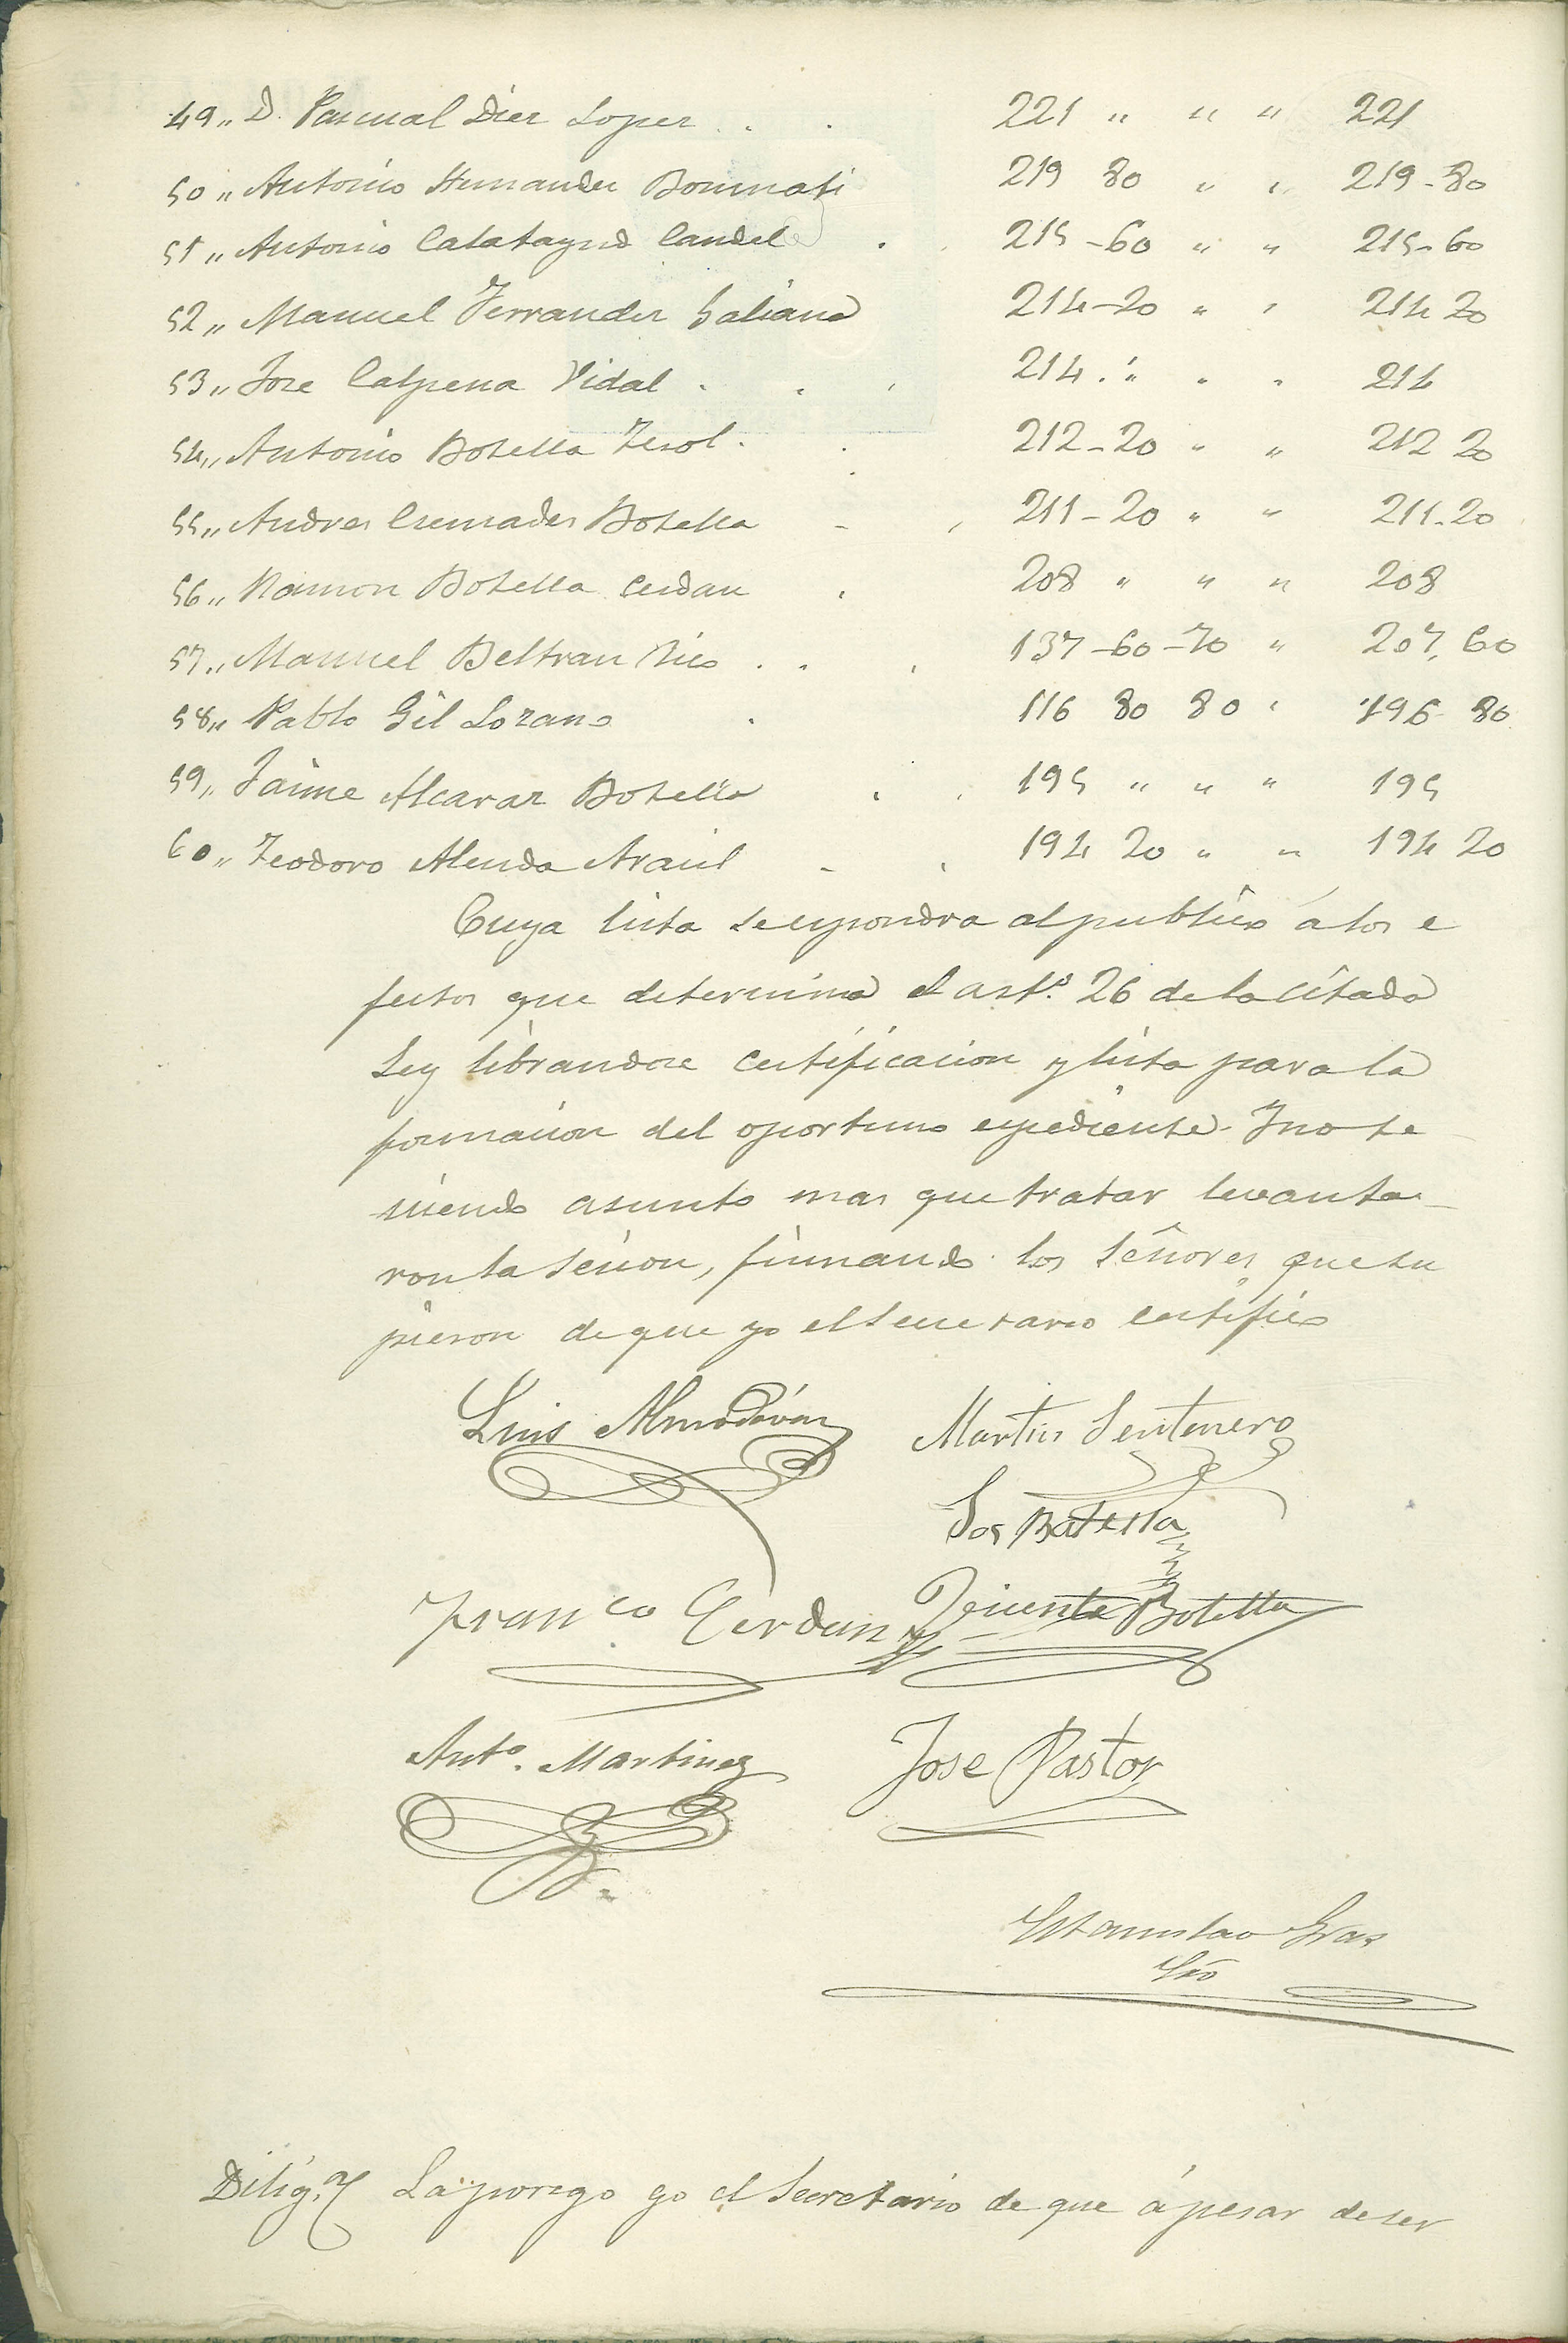 49,, D. Pascual Diez Lopez . . 221 " " " 221
50 ,, Antonio Hernandez Bonmati 219 80 " " 219-80
51 ,, Antonio Calatayud Candel . . 215-60 " " 215-60
52 ,, Manuel Ferrandez Galiana 214-20 " " 214 20
53 ,, Jose Calpena Vidal . . . 214 . " " " 214
54 ,, Antonio Botella Terol . . 212-20 " " 212 20
55 ,, Andres Cremades Botella - , 211-20 " " 211-20
56 ,, Ramon Botella Cerdan . 208 " " " 208
57 ,, Manuel Beltran Rico . . . 137-60-70 " 207, 60
58 ,, Pablo Gil Lozano . 116 80 80 " 196- 80
59 ,, Jaime Alcaraz Botella . . 195 " " " 195
60 ,, Teodoro Alenda Aracil - . 194 20 " " 194 20
Cuya lista se espondra al publico á los e
fectos que determina el artº. 26 de la citada
Ley librandose certificacion y lista para la
formacion del oportuno espediente. Y no te
niendo asunto mas que tratar levanta-
ron la sesion, firmando los Señores que su
pieron de que yo el Secretario certifico
Luis Almodóvar Martin Sentenero
Jos Botella
Franco Cerdan Vicente Botella
Anto. Martinez Jose Pastor
Estanislao Gras
Srio
Dilig.ª La pongo yo el Secretario de que á pesar de ser